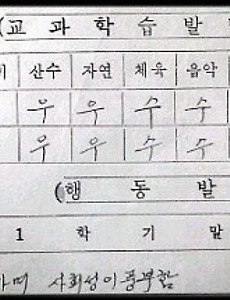 (교 과 학 습 발
산수 자연 체육 음악
우 우 수 수
우 우 수 수
(행 동 발
1 학 기 말
며 사회성이 풍부함